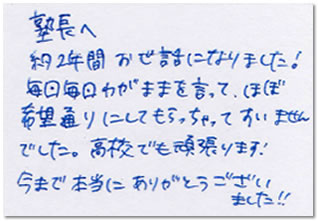 塾長へ
約2年間 おせ話になりました!
毎日毎日わがままを言って、ほぼ
希望通りにしてもらっちゃってすいません
でした。高校でも頑張ります!
今まで本当にありがとうござい
ました!!